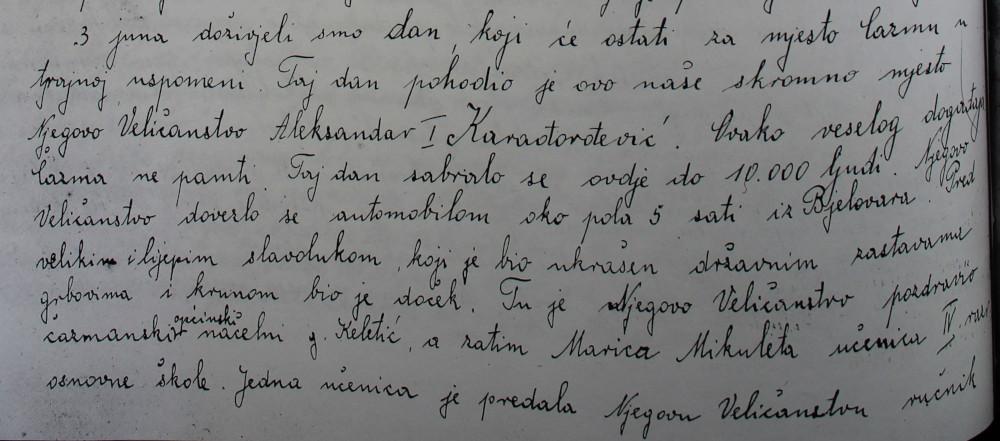 3 juna doživjeli smo dan, koji će ostati za mjesto Čazmu u
trajnoj uspomeni. Taj dan pohodio je ovo naše skromno mjesto
Njegovo Veličanstvo Aleksandar I Karađorđević. Ovako veselog događaja
Čazma ne pamti. Taj dan sabralo se ovdje do 10.000 ljudi. Njegovo
Veličanstvo dovezlo se automobilom oko pola 5 sati iz Bjelovara. Pred
velikim i lijepim slavolukom, koji je bio ukrašen državnim zastavama
grbovima i krunom bio je doček. Tu je Njegovo Veličanstvo pozdravio
čazmanski općinski načelni g. Keletić, a zatim Marica Mikuleta učenica IV. raz.
osnovne škole. Jedna učenica je predala Njegovu Veličanstvu ručnik